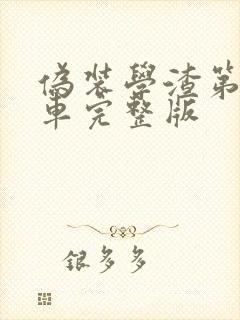 偽裝學渣第
車完整版
銀多多